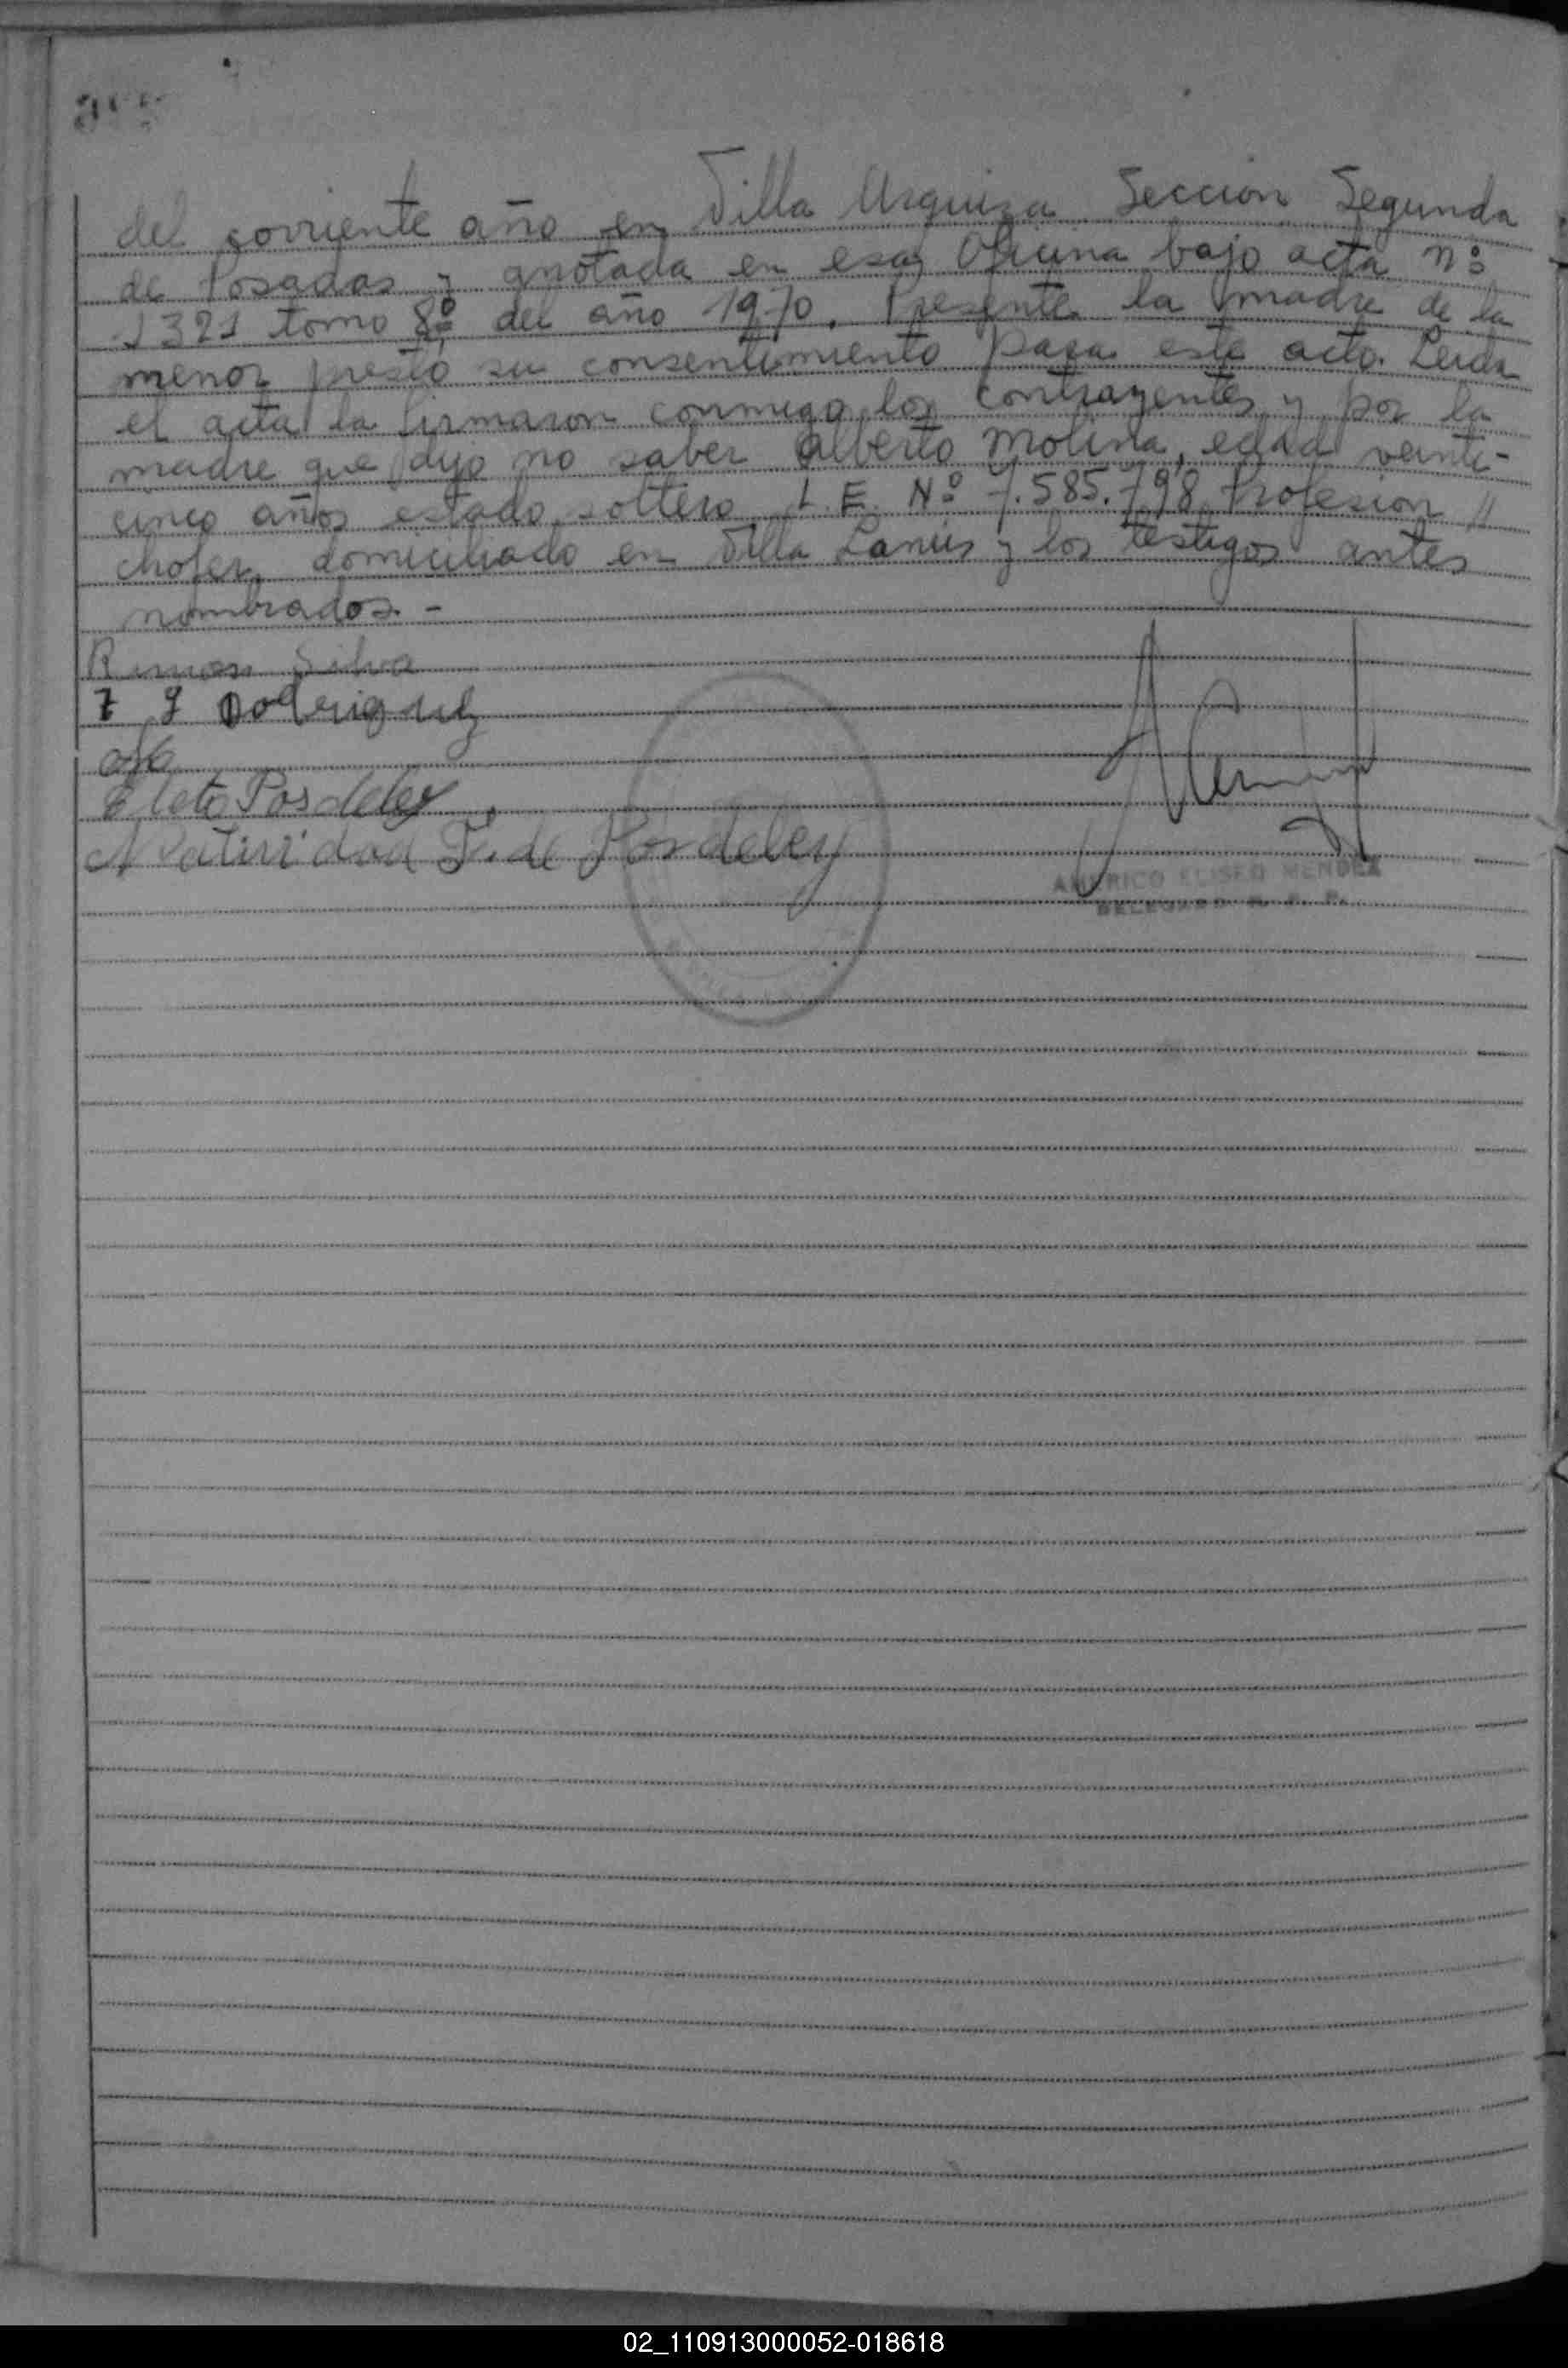 del corriente año en Villa Urquiza Sección Segunda
de Posadas y anotada en esa Oficina bajo acta nº
1321 tomo 8º del año 1970. Presente la madre de la
menor prestó su consentimiento para este acto. Leida
el acta la firmaron conmigo los contrayentes y por la
madre que dijo no saber Alberto Molina, edad veinti-
cinco años estado soltero L.E. Nº 7.585.798, Profesion //
chofer, domiciliado en Villa Lanús y los testigos antes
nombrados -
Ramon Silva
Rodriguez
Posdeley
Natividad F. de Posdeley
AMERICO ELISEO MENDEZ
DELEGADO R. C. P.
02_110913000052-018618